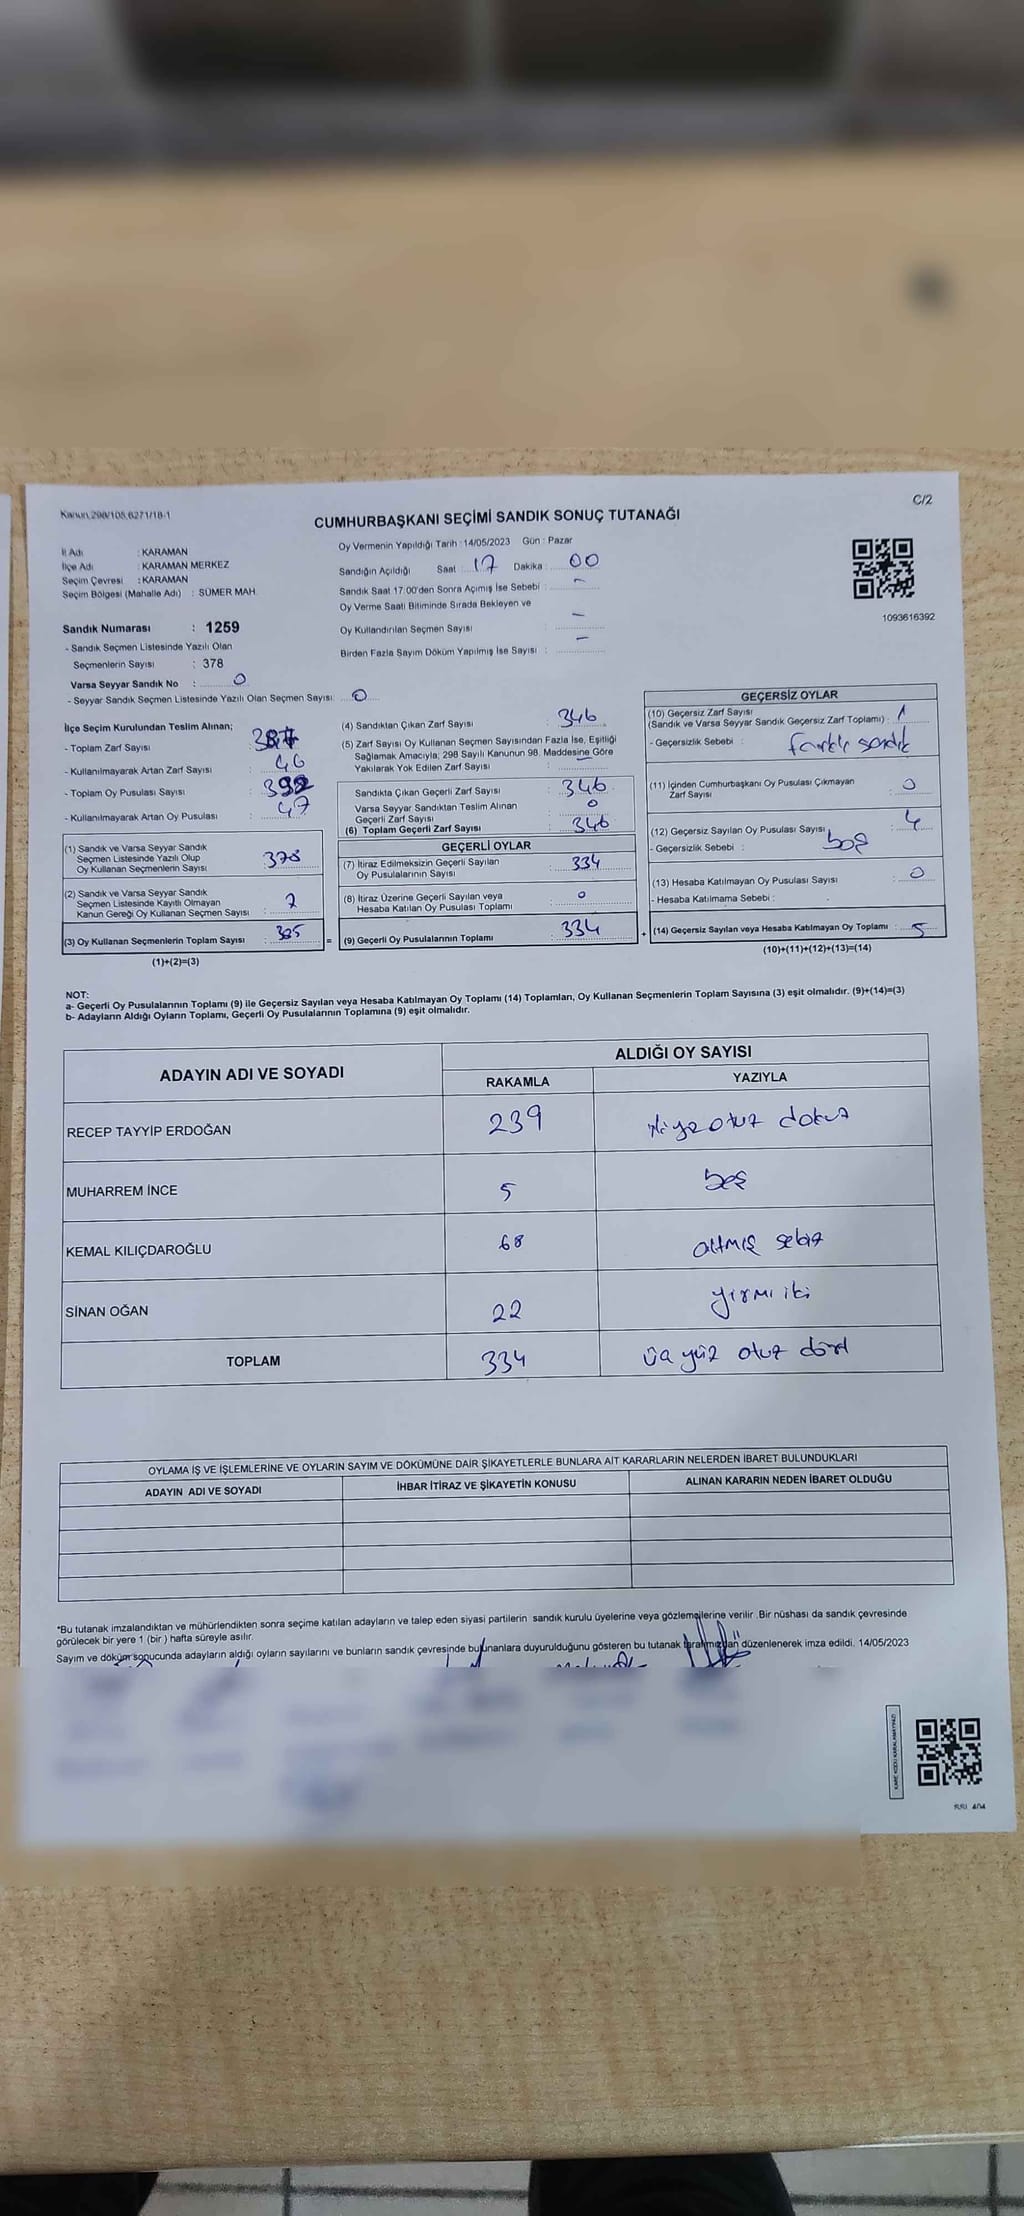 Kanun,298/105,6271/18-1
C/2
CUMHURBAŞKANI SEÇİMİ SANDIK SONUÇ TUTANAĞI
İl Adı : KARAMAN
İlçe Adı : KARAMAN MERKEZ
Seçim Çevresi : KARAMAN
Seçim Bölgesi (Mahalle Adı) : SÜMER MAH.
Sandık Numarası : 1259
- Sandık Seçmen Listesinde Yazılı Olan
Seçmenlerin Sayısı : 378
Varsa Seyyar Sandık No : 0
- Seyyar Sandık Seçmen Listesinde Yazılı Olan Seçmen Sayısı: 0
Oy Vermenin Yapıldığı Tarih : 14/05/2023 Gün : Pazar
Sandığın Açıldığı Saat : 17 Dakika : 00
Sandık Saat 17:00'den Sonra Açımış İse Sebebi : -
Oy Verme Saati Bitiminde Sırada Bekleyen ve
Oy Kullandırılan Seçmen Sayısı : -
Birden Fazla Sayım Döküm Yapılmış İse Sayısı : -
1093616392
İlçe Seçim Kurulundan Teslim Alınan;
- Toplam Zarf Sayısı :
- Kullanılmayarak Artan Zarf Sayısı : 46
- Toplam Oy Pusulası Sayısı : 392
- Kullanılmayarak Artan Oy Pusulası : 47
(1) Sandık ve Varsa Seyyar Sandık
Seçmen Listesinde Yazılı Olup
Oy Kullanan Seçmenlerin Sayısı : 378
(2) Sandık ve Varsa Seyyar Sandık
Seçmen Listesinde Kayıtlı Olmayan
Kanun Gereği Oy Kullanan Seçmen Sayısı : 7
(3) Oy Kullanan Seçmenlerin Toplam Sayısı : 385
(1)+(2)=(3)
(4) Sandıktan Çıkan Zarf Sayısı : 346
(5) Zarf Sayısı Oy Kullanan Seçmen Sayısından Fazla İse, Eşitliği
Sağlamak Amacıyla, 298 Sayılı Kanunun 98. Maddesine Göre
Yakılarak Yok Edilen Zarf Sayısı : -
Sandıkta Çıkan Geçerli Zarf Sayısı : 346
Varsa Seyyar Sandıktan Teslim Alınan
Geçerli Zarf Sayısı : 0
(6) Toplam Geçerli Zarf Sayısı : 346
GEÇERLİ OYLAR
(7) İtiraz Edilmeksizin Geçerli Sayılan
Oy Pusulalarının Sayısı : 334
(8) İtiraz Üzerine Geçerli Sayılan veya
Hesaba Katılan Oy Pusulası Toplamı : 0
= (9) Geçerli Oy Pusulalarının Toplamı : 334
GEÇERSİZ OYLAR
(10) Geçersiz Zarf Sayısı
(Sandık ve Varsa Seyyar Sandık Geçersiz Zarf Toplamı) : 1
- Geçersizlik Sebebi : farklı sandık
(11) İçinden Cumhurbaşkanı Oy Pusulası Çıkmayan
Zarf Sayısı : 0
(12) Geçersiz Sayılan Oy Pusulası Sayısı : 4
- Geçersizlik Sebebi : boş
(13) Hesaba Katılmayan Oy Pusulası Sayısı : 0
- Hesaba Katılmama Sebebi :
+ (14) Geçersiz Sayılan veya Hesaba Katılmayan Oy Toplamı : 5
(10)+(11)+(12)+(13)=(14)
NOT:
a- Geçerli Oy Pusulalarının Toplamı (9) ile Geçersiz Sayılan veya Hesaba Katılmayan Oy Toplamı (14) Toplamları, Oy Kullanan Seçmenlerin Toplam Sayısına (3) eşit olmalıdır. (9)+(14)=(3)
b- Adayların Aldığı Oyların Toplamı, Geçerli Oy Pusulalarının Toplamına (9) eşit olmalıdır.
ADAYIN ADI VE SOYADI ALDIĞI OY SAYISI
RAKAMLA YAZIYLA
RECEP TAYYİP ERDOĞAN 239 ikiyüz otuz dokuz
MUHARREM İNCE 5 beş
KEMAL KILIÇDAROĞLU 68 altmış sekiz
SİNAN OĞAN 22 yirmi iki
TOPLAM 334 üç yüz otuz dört
OYLAMA İŞ VE İŞLEMLERİNE VE OYLARIN SAYIM VE DÖKÜMÜNE DAİR ŞİKAYETLERLE BUNLARA AİT KARARLARIN NELERDEN İBARET BULUNDUKLARI
ADAYIN ADI VE SOYADI İHBAR İTİRAZ VE ŞİKAYETİN KONUSU ALINAN KARARIN NEDEN İBARET OLDUĞU
*Bu tutanak imzalandıktan ve mühürlendikten sonra seçime katılan adayların ve talep eden siyasi partilerin sandık kurulu üyelerine veya gözlemcilerine verilir .Bir nüshası da sandık çevresinde
görülecek bir yere 1 (bir ) hafta süreyle asılır.
Sayım ve döküm sonucunda adayların aldığı oyların sayılarını ve bunların sandık çevresinde bulunanlara duyurulduğunu gösteren bu tutanak tarafımızdan düzenlenerek imza edildi. 14/05/2023
KARE KODU KARALAMAYINIZ!